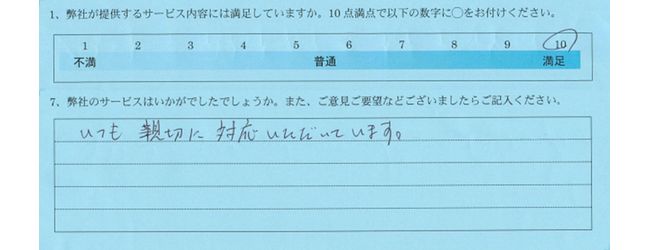 1、弊社が提供するサービス内容には満足していますか。10点満点で以下の数字に○をお付けください。
1 2 3 4 5 6 7 8 9 10
不満 普通 満足
7、弊社のサービスはいかがでしたでしょうか。また、ご意見ご要望などございましたらご記入ください。
いつも 親切に 対応 いただいています。